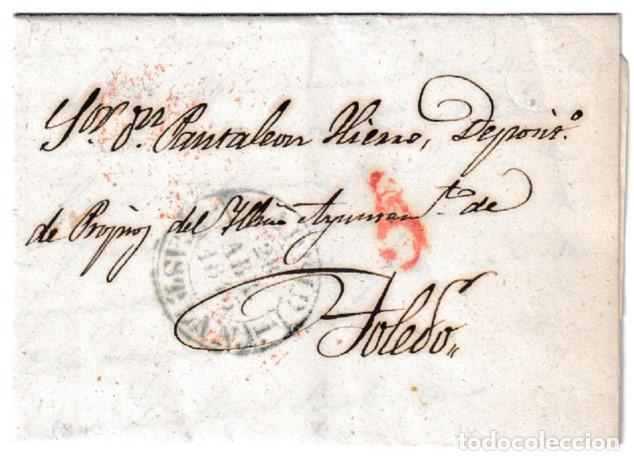 Sor. Dn. Pantaleon Hierro, Deposit.o
de Propios del Ilmo Ayuntam.to de
Toledo.
5
todocoleccion.net